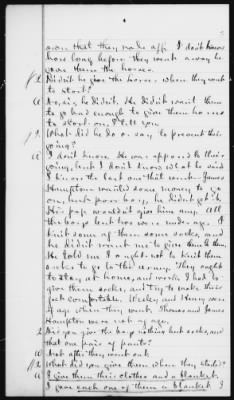 soon that they make aff. I don't know
how long before they went away he
gave them the horses.
Q Didn't he give the horses when they went
to start?
A No, sir, he didn't. He didn't want them
to go bad enough to give them horses
to start on, I tell you.
Q What did he do or say to prevent this
going?
A I don't know. He was opposed to their
going, but I don't know what he said
I know the last one that went James
Hampton wanted some money to go
on, but poor boy, he didn't get it.
His papa wouldn't give him any. All
the boys but two were under age. I
knit some of them some socks, and
he didn't want me to give them to them,
He told me I ought not to knit them
socks to go to the army. They ought
to stay at home, and work. I had to
give them socks, and try to make their
feet comfortable. Wesley and Henry were
of age when they went. Thomas and James
Hampton were not of age.
Q Did you give the boys nothing but socks, and
that one pair of pants?
A Not after they went out.
Q What did you give them when they started?
A I give them their clothes and a blanket.
I gave each one of them a blanket I